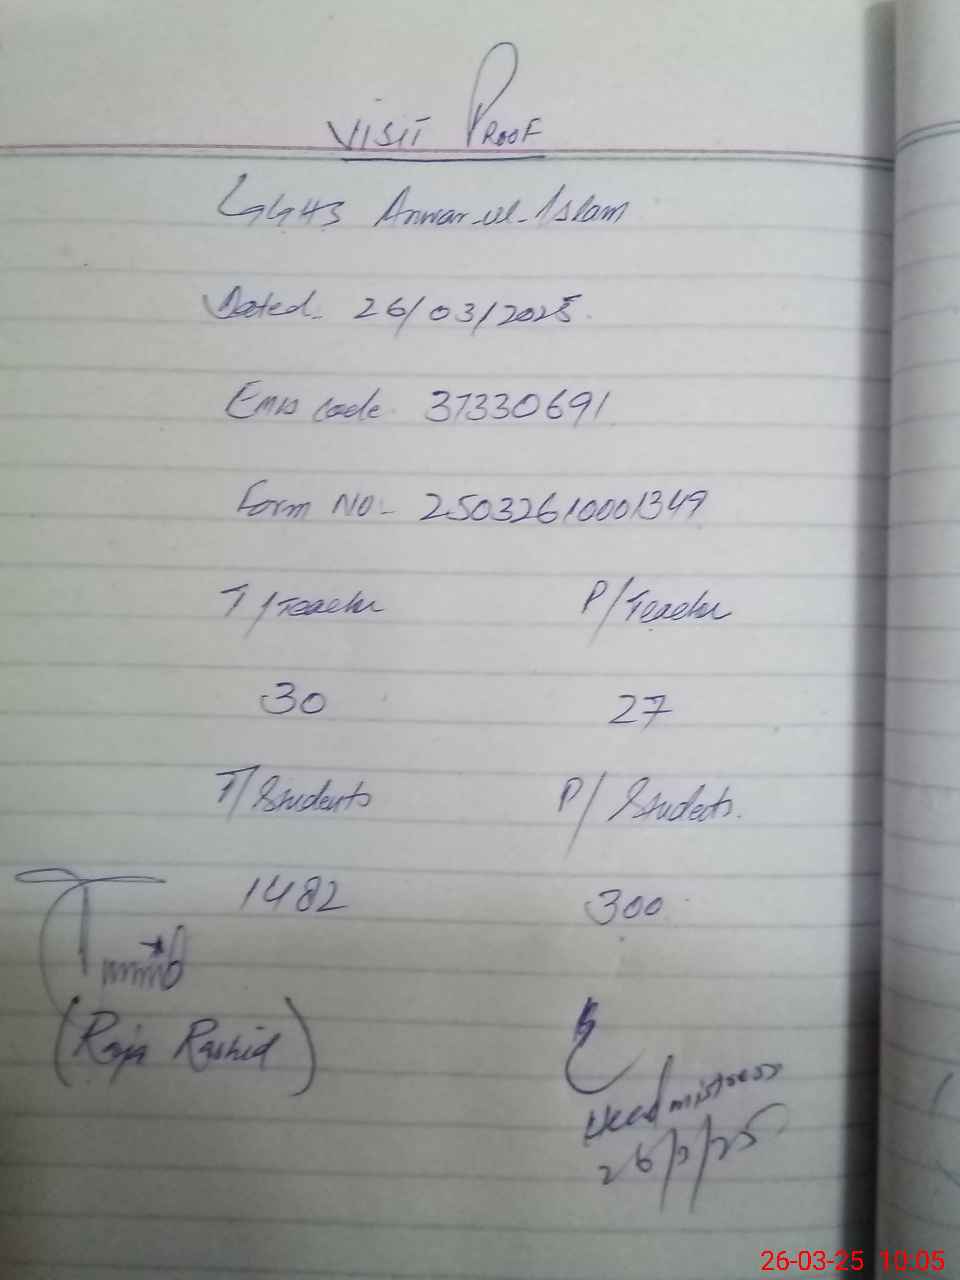 VISIT PROOF
GGHS Anwar-ul-Islam
Dated. 26/03/2025.
Emis code 37330691
Form NO:- 25032610001349
T/Teacher P/Teacher
30 27
T/Students P/Students.
1482 300
(Raja Rashid)
Headmistress
26/3/25
26-03-25 10:05